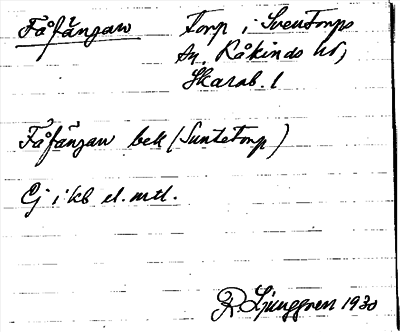 Fåfängan Torp i Sventorps
sn, Kåkinds hd,
Skarab. l
Fåfängan bek (Suntetorp)
Ej i kb el. mtl.
R. Ljunggren 1930